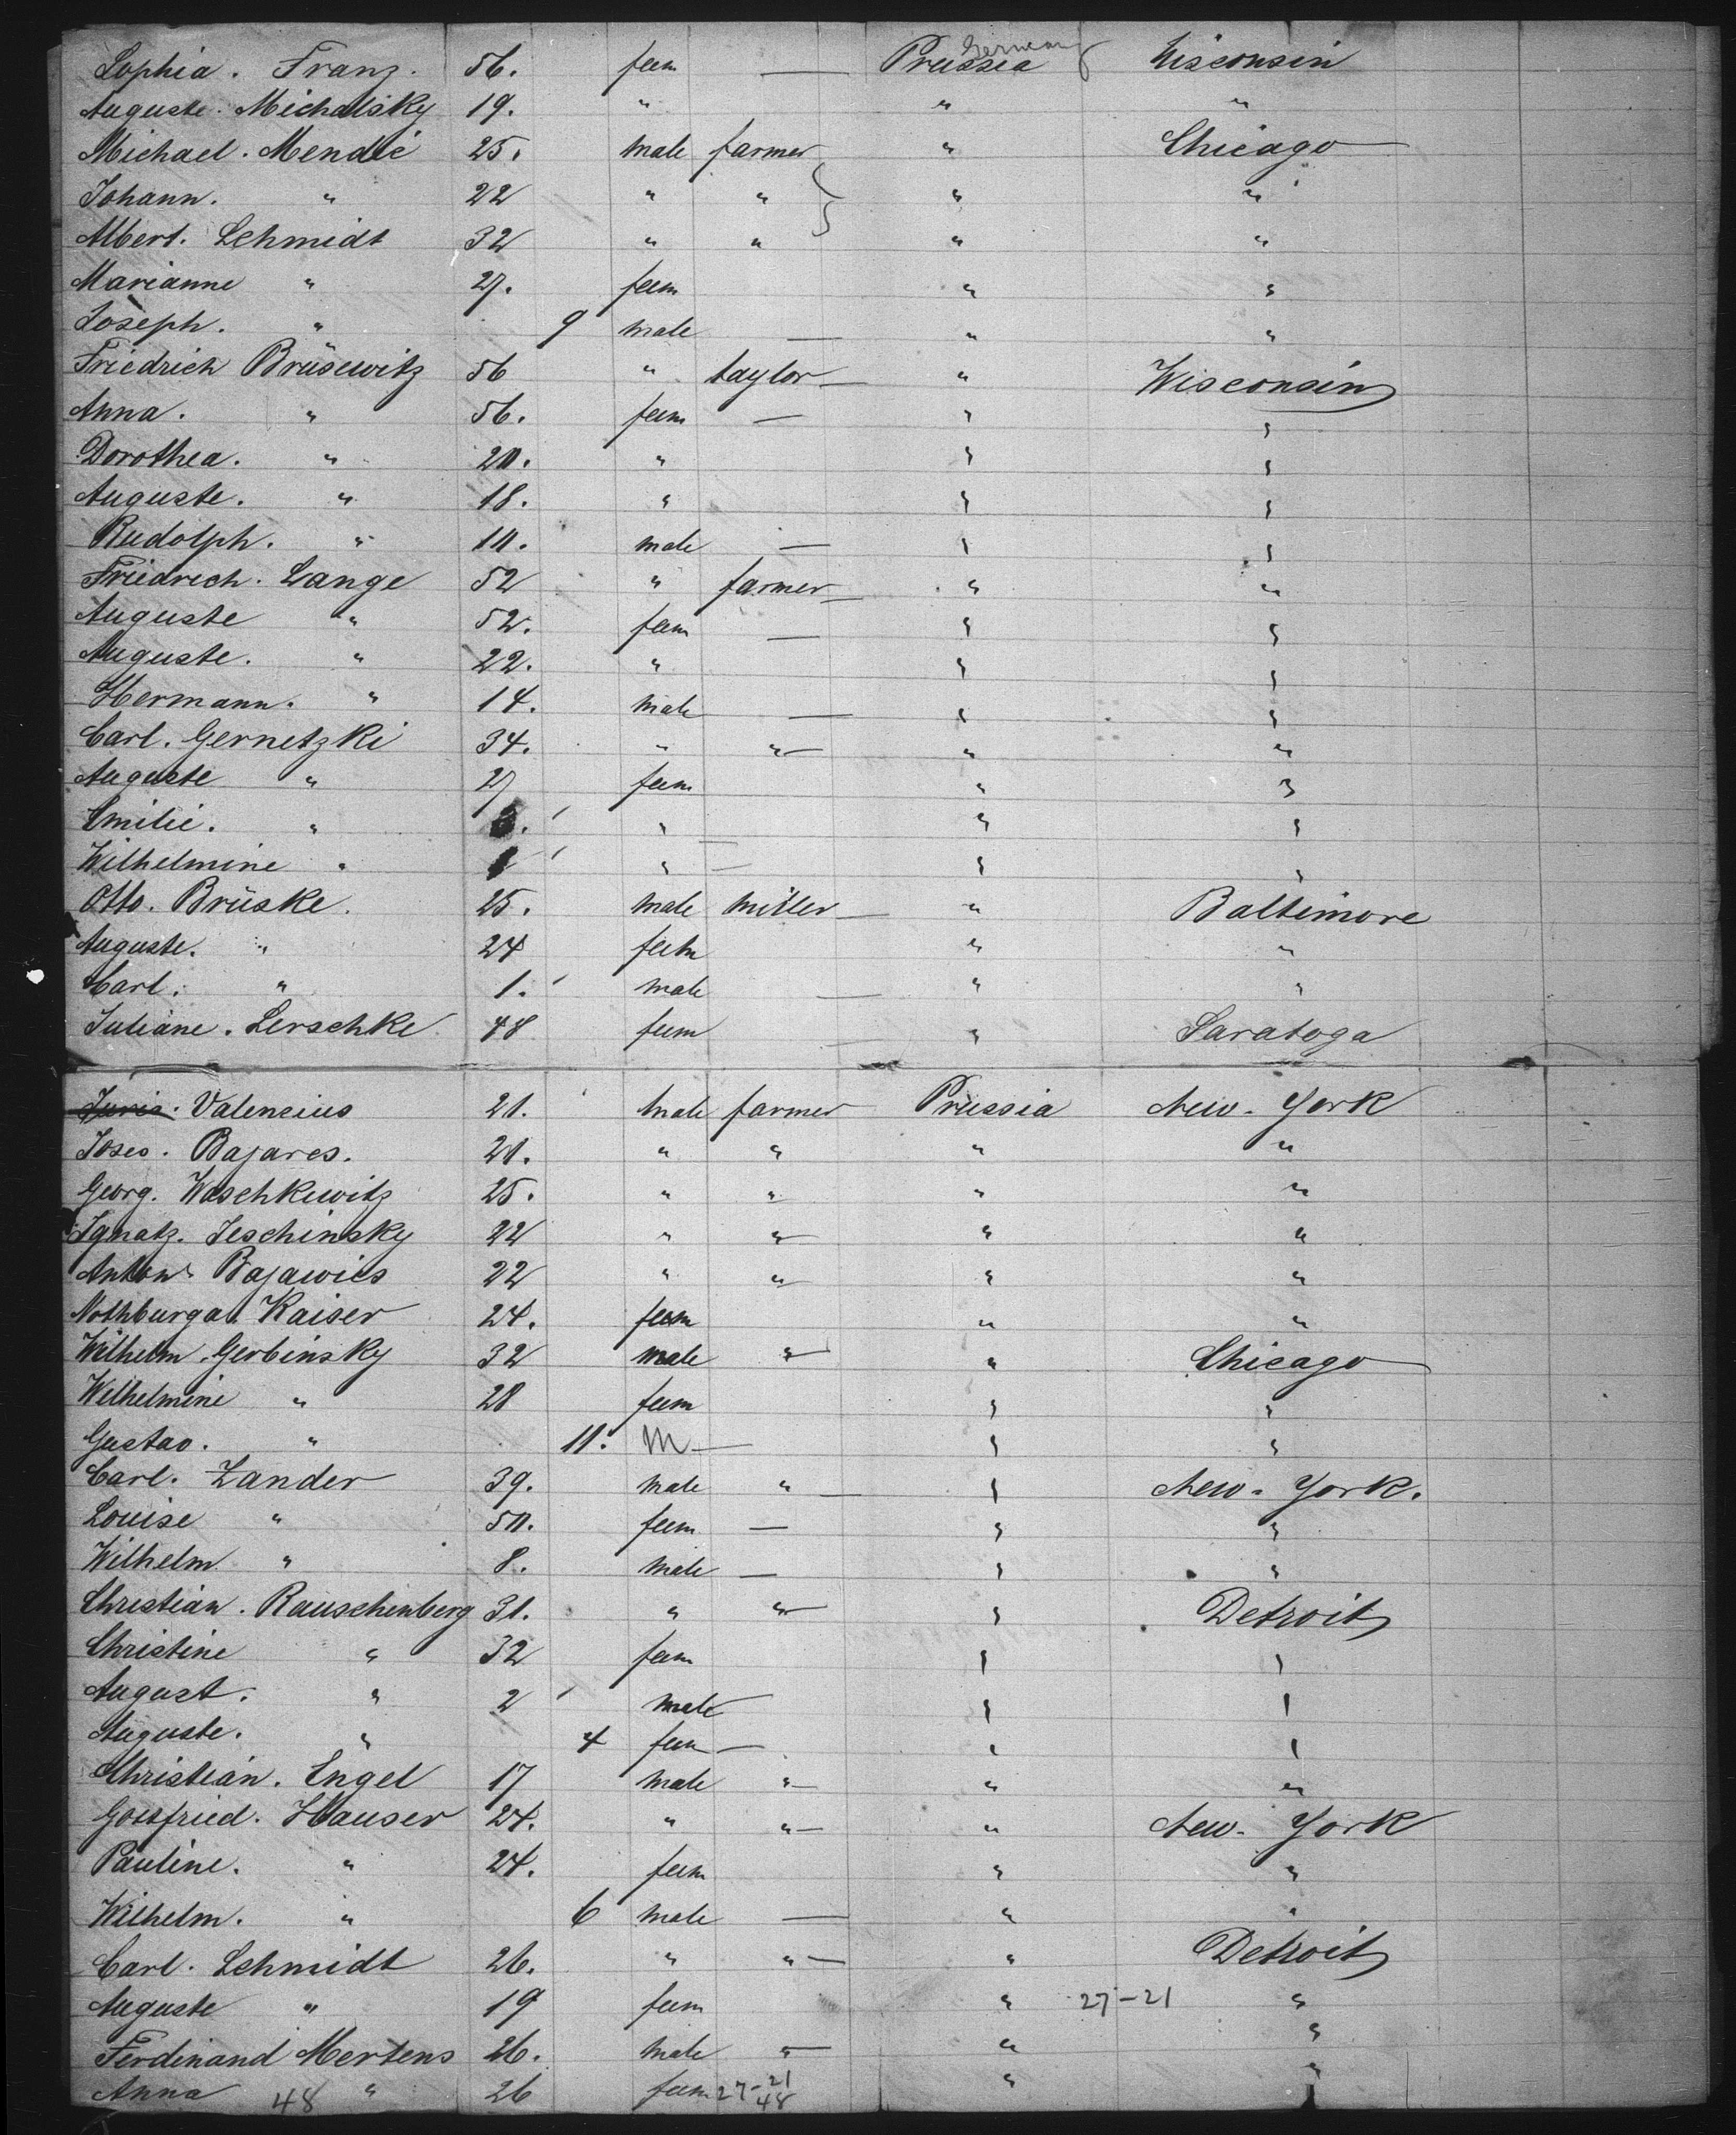 Germany
Sophia. Franz. 56. fem — Prussia Wisconsin
Auguste. Michalsky 19. " " "
Michael. Mendle 25. male farmer " Chicago
Johann. " 22 " " " "
Albert. Schmidt 32 " " " "
Marianne " 27. fem " "
Joseph. " 9 male — " "
Friedrich Brüsewitz 56 " taylor — " Wisconsin
Anna. " 56. fem — " "
Dorothea. " 20. " " "
Auguste. " 18. " " "
Rudolph. " 10. male — " "
Friedrich. Lange 52 " farmer — " "
Auguste " 52. fem — " "
Auguste. " 22. " " "
Hermann. " 14. male — " "
Carl. Gernetzki 34. " " — " "
Auguste " 27 fem " "
Emilie. " 3. " " "
Wilhelmine " 1 " — " "
Otto. Brüske. 25. male miller — " Baltimore
Auguste. " 24 fem " "
Carl. " 1. male — " "
Juliane. Lerschke 48 fem — " Saratoga
Valencius 21. male farmer Prussia New-York
Joses. Bajares. 21. " " " "
Georg. Waschkewitz 25. " " " "
Ignatz. Jeschinsky 22 " " " "
Anton. Bajawies 22 " " " "
Nothburga. Kaiser 24. fem " "
Wilhelm. Gerbinsky 32 male " " Chicago
Wilhelmine " 28 fem " "
Gustav. " 11. M — " "
Carl. Zander 39. male " — " New-York.
Louise " 50. fem — " "
Wilhelm " 8. male — " "
Christian. Rauschenberg 31. " " " Detroit
Christine " 32 fem " "
August. " 2 male " "
Auguste. " 4 fem — " "
Christian. Engel 17 male " — " "
Gottfried. Hauser 24. " " — " New-York
Pauline. " 24. fem " "
Wilhelm. " 6 male — " "
Carl. Schmidt 26. " " — " Detroit
Auguste " 19 fem " 27-21 "
Ferdinand Mertens 26. male " — " "
Anna 48 " 26 fem 27-21 " "
48